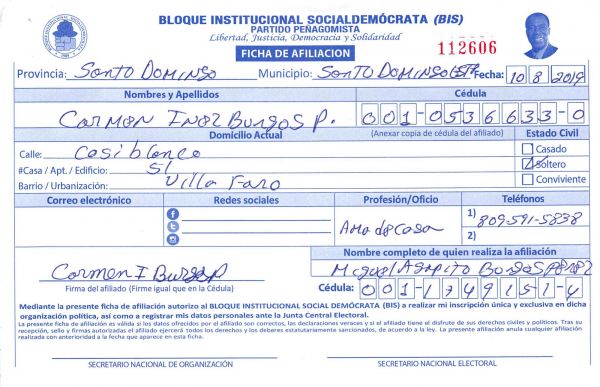 BLOQUE INSTITUCIONAL SOCIALDEMÓCRATA (BIS)
PARTIDO PEÑAGOMISTA
Libertad, Justicia, Democracia y Solidaridad
FICHA DE AFILIACION
112606
Provincia: Santo Domingo Municipio: Santo Domingo Este Fecha: 10 8 2019
Nombres y Apellidos Cédula
Carmen Inez Burgos P. 001-0536633-0
Domicilio Actual (Anexar copia de cédula del afiliado) Estado Civil
Calle: Casiblanca Casado
#Casa / Apt. / Edificio: 51 Soltero
Barrio / Urbanización: Villa Faro Conviviente
Correo electrónico Redes sociales Profesión/Oficio Teléfonos
Ama de Casa 1) 809-591-5838
2)
Nombre completo de quien realiza la afiliación
Carmen I Burgos P Miguel Agapito Burgos
Firma del afiliado (Firme igual que en la Cédula) Cédula: 001-1749151-4
Mediante la presente ficha de afiliación autorizo al BLOQUE INSTITUCIONAL SOCIAL DEMÓCRATA (BIS) a realizar mi inscripción única y exclusiva en dicha
organización política, así como a registrar mis datos personales ante la Junta Central Electoral.
La presente ficha de afiliación es válida si los datos ofrecidos por el afiliado son correctos, las declaraciones veraces y si el afiliado tiene el disfrute de sus derechos civiles y políticos. Tras su
recepción, sello y firmas autorizadas el afiliado ejercerá todos los derechos y los deberes estatutariamente sancionados, de acuerdo a la ley. La presente afiliación anula cualquier afiliación
realizada con anterioridad a la fecha que aparece en esta ficha.
SECRETARIO NACIONAL DE ORGANIZACIÓN SECRETARIO NACIONAL ELECTORAL